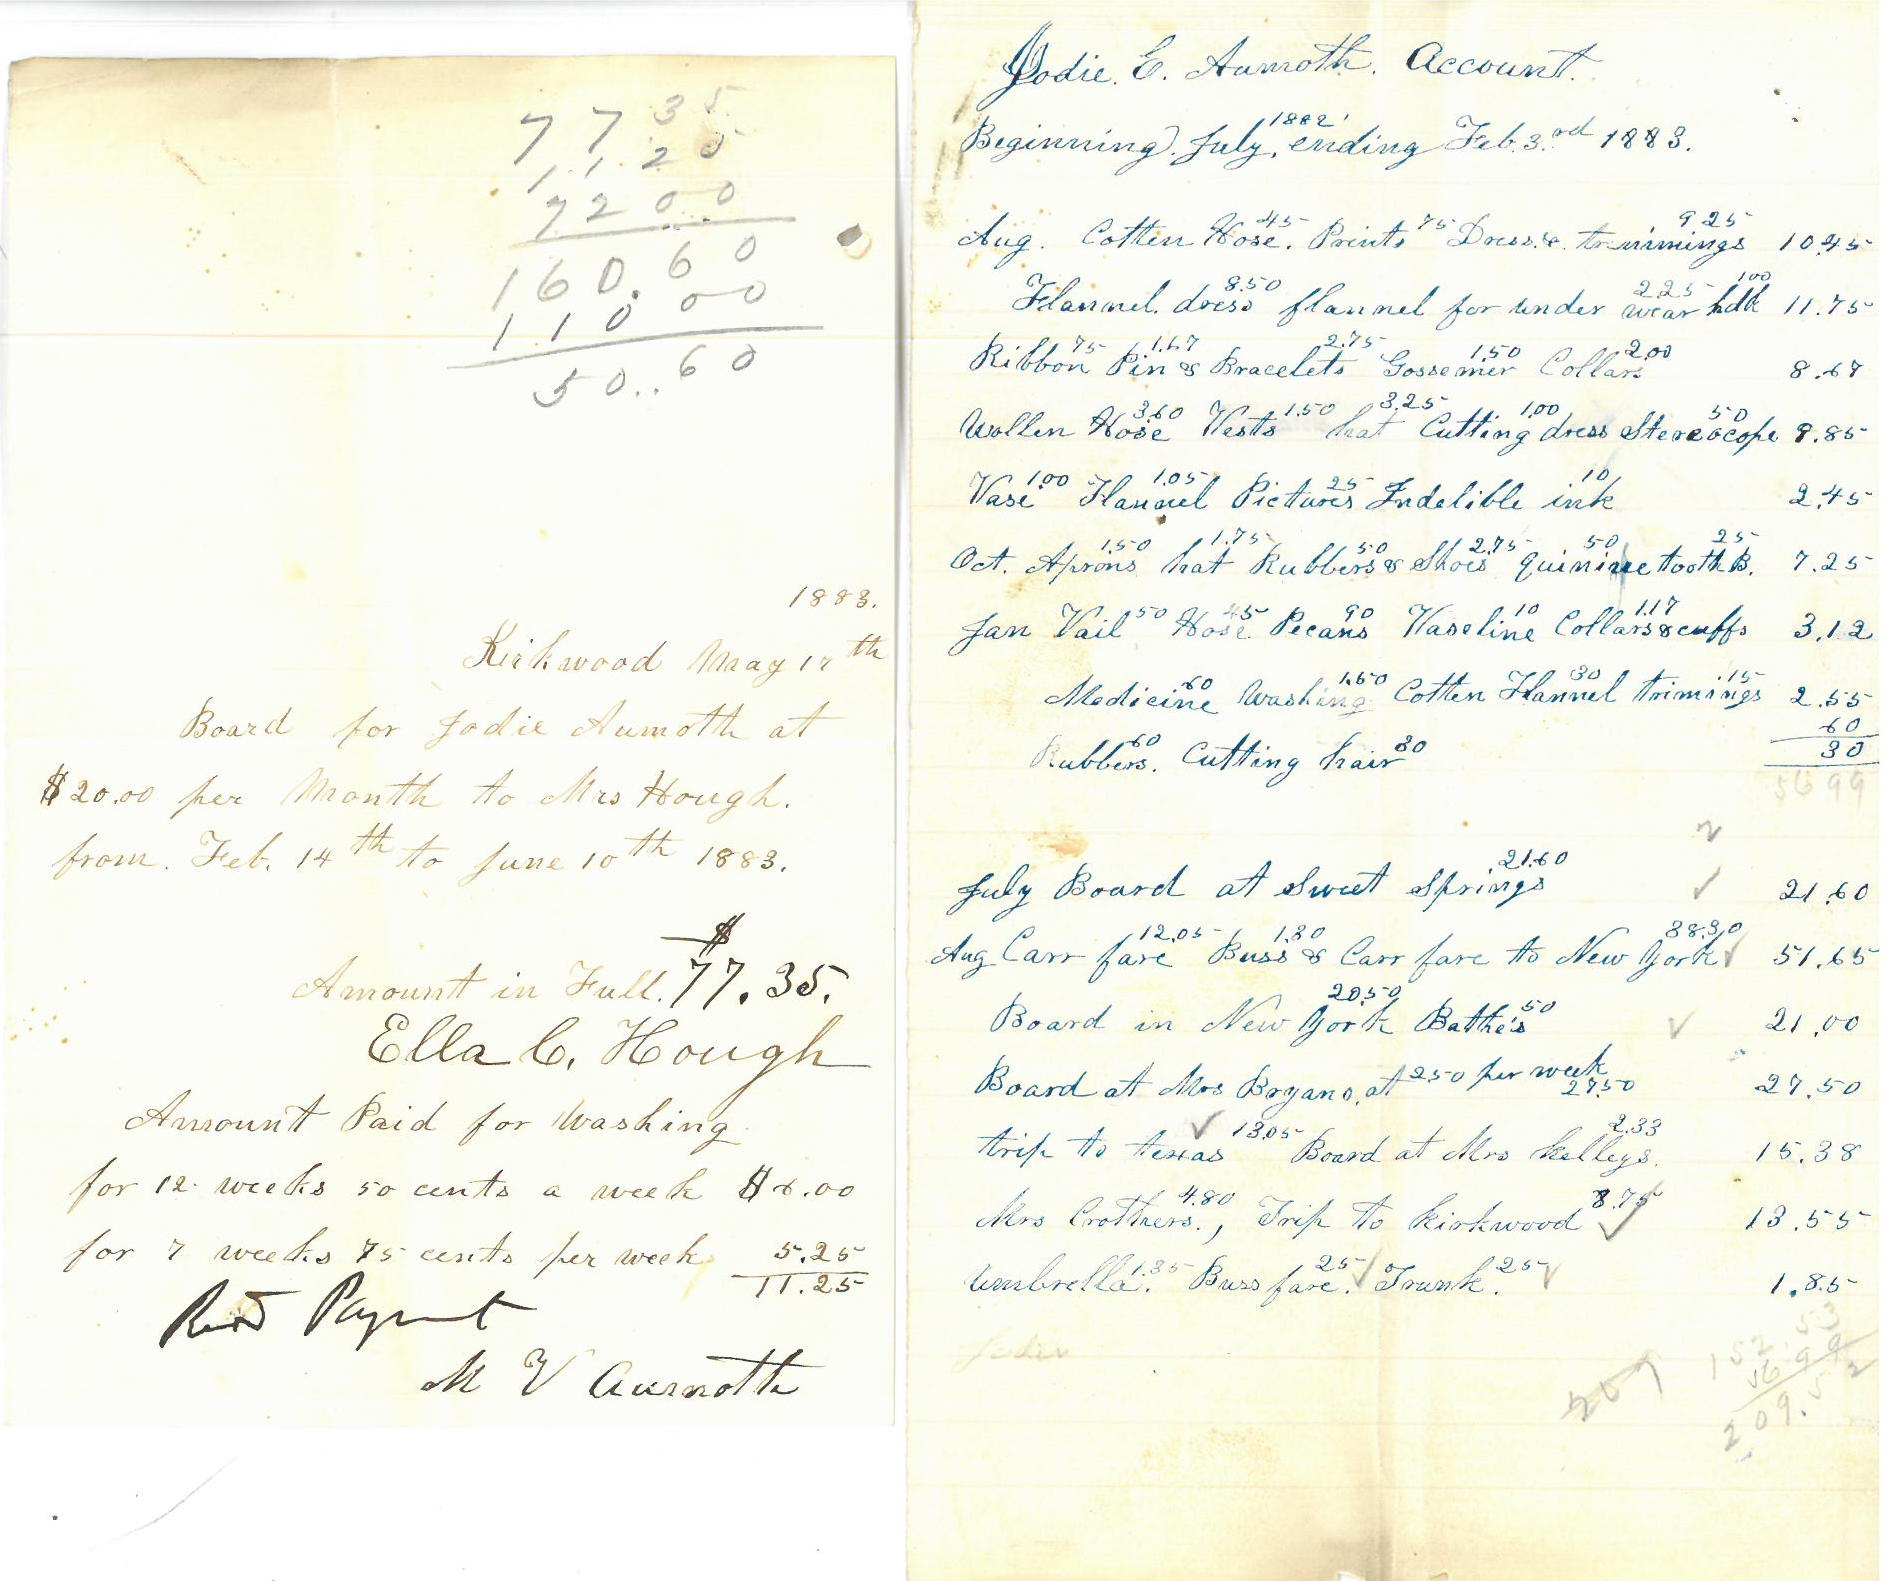 77 35
11.25
72 00
160.60
110 00
50..60
1883.
Kirkwood May 17th
Board for Jodie Aumoth at
$20.00 per Month to Mrs Hough.
from. Feb. 14th to June 10th 1883.
$
Amount in Full. 77.35.
Ella C. Hough
Amount Paid for Washing
for 12 weeks 50 cents a week $6.00
for 7 weeks 75 cents per week 5.25
11.25
M V Aumoth
Jodie. E. Aumoth. Account.
Beginning July, 1882, ending Feb. 3rd 1883.
Aug. Cotten Hose. 45 Prints 75 Dress & trimmings 9 25 10.45
Flannel. dress 8.50 flannel for under wear 2.25 hdk 1.00 11.75
Ribbon 75 Pin 1.67 & Bracelets 2.75 Gossemer 1.50 Collars 2.00 8.67
Wollen Hose 3.60 Vests 1.50 hat 3.25 Cutting dress 1.00 Stereocope 50 9.85
Vase 1.00 Flannel 1.05 Pictures 25 Indelible ink 10 2.45
Oct. Aprons 1.50 hat 1.75 Rubbers 50 & Shoes 2.75 quinine 50 tooth B. 25 7.25
Jan Vail 50 Hose 45 Pecans 90 Vaseline 10 Collars & cuffs 1.17 3.12
Medicine 60 Washing 1.50 Cotten Flannel 30 trimings 15 2.55
60
Rubbers. 60 Cutting hair 30 30
56 99
July Board at Sweet Springs 21.60 21.60
Aug Carr fare 12.05 Buss 1.30 & Carr fare to New York 38.30 51.65
Board in New York 20.50 Bathes 50 21.00
Board at Mrs Bryans, at 2.50 per week 27.50 27.50
trip to texas 13.05 Board at Mrs Kelleys. 2.33 15.38
Mrs Crothers., 4.80 Trip to Kirkwood 8.75 13.55
Umbrella. 1.35 Buss fare. 25 Trunk. 25 1.85
Jodie
152.53
56 99
209.52